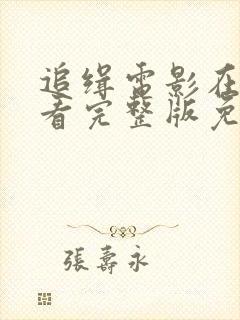 追缉电影在
看完整版免
張壽永